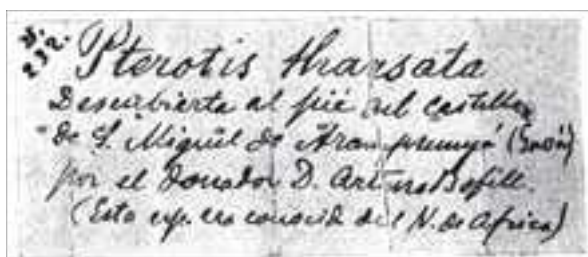 N. 232.
Pterotis tharsata
Descubierta al pié del Castillo
de S. Miguel de Aramprunyá (Gavá)
por el donador D. Arturo Bofill.
(Esta esp. era conocid del N. de Africa)